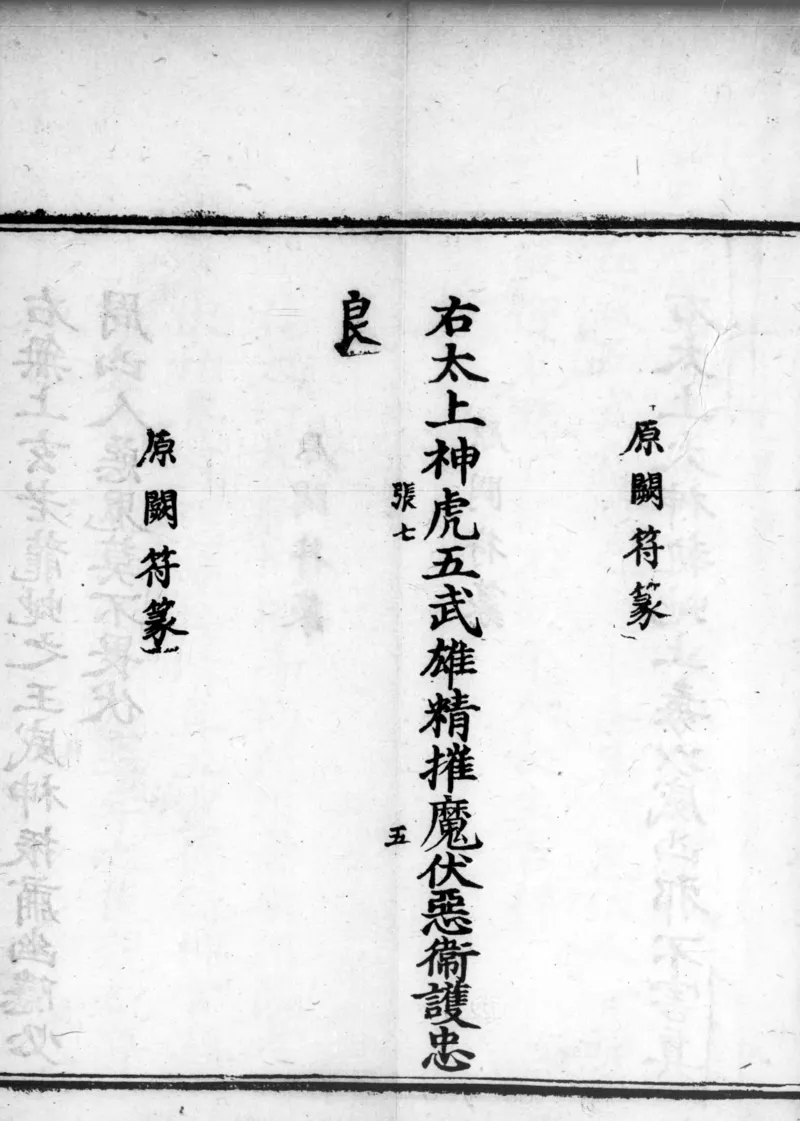 原闕符篆
右太上神虎五武雄精摧魔伏惡衛護忠
張七
五
良
原闕符篆